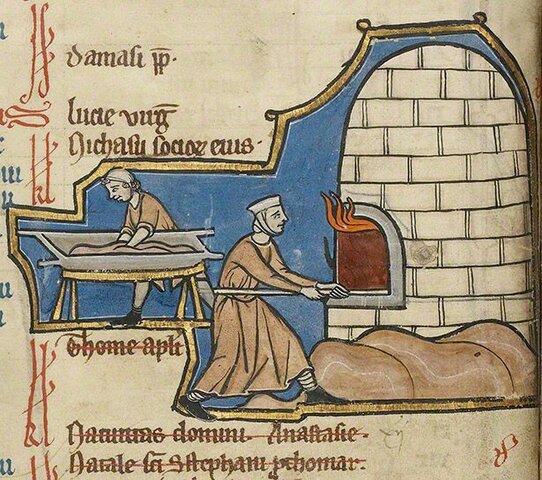 damasi pp̄.
lucie virḡ
Nichasii socior eius.
Thome apl̄i
Natiuitas domini. Anastasie.
Natale sc̄i Stephani pthomar.